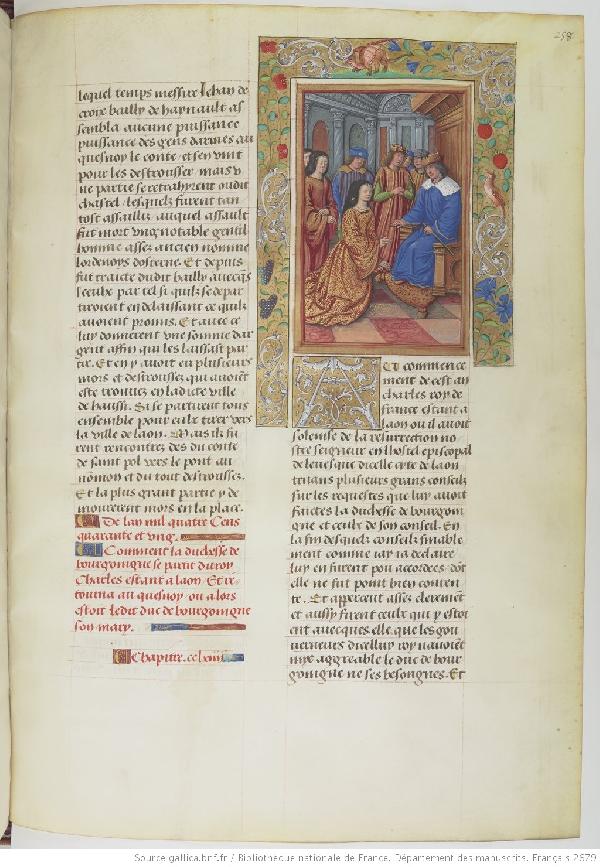 258
lequel temps messire Jehan de
croix bailly de haynault as
sembla aucune puissance
puissance des gens darmes au
quesnoy le conte / et sen vint
pour les destrousser / mais v
ne partie se retrahyrent oudit
chastel / lesquelz furent tan
tost assaillis auquel assault
fut mort vng notable gentil
homme assez ancien nomme
lordenoys dosterne. Et depuis
fut traicte dudit bailly avecqs
iceulx par tel si quilz se depar
tiroient en delaissant ce quilz
avoient promis. Et avec ce
luy donnerent vne somme dar
gent affin qui les laissast par
tir. Et en y avoit eu plusieurs
mors et destroussez qui avoiẽt
este trouvez en ladicte ville
de haussi. Si se partirent tous
ensemble pour eulx tirer vers
la ville de laon. Mais ilz fu
rent rencontrez des du conte
de saint pol vers le pont au
nõmon et du tout destroussez.
Et la plus grant partie y de
mourerent mors en la place.
De lan mil quatre Cens
quarante et vng.
Comment la duchesse de
bourgoingne se partit du roy
Charles estant a laon. Et re
tourna au quesnoy ou alors
estoit ledit duc de bourgoingne
son mary.
Chapitre. cc lxiiii
Au commence
ment de cest an
charles roy de
france estant a
laon ou il avoit
solemise de la resurrection no
stre seigneur en lhostel episcopal
de levesque dicelle cyte de laon
tenans plusieurs grans conseilz
sur les requestes que luy avoit
faictes la duchesse de bourgoin
gne et ceulx de son conseil. En
la fin desquelz conseilz finable
ment comme iay ia declaire
luy en furent peu accordees / dõt
elle ne fut point bien conten
te. Et appercent assez clerement
et aussy firent ceulx qui y estoi
ent avecques elle que les gou
verneurs dicelluy roy navoiẽt
mye aggreable le duc de bour
goingne ne ses besongnes. Et
Source gallica.bnf.fr / Bibliothèque nationale de France. Département des manuscrits. Français 2679